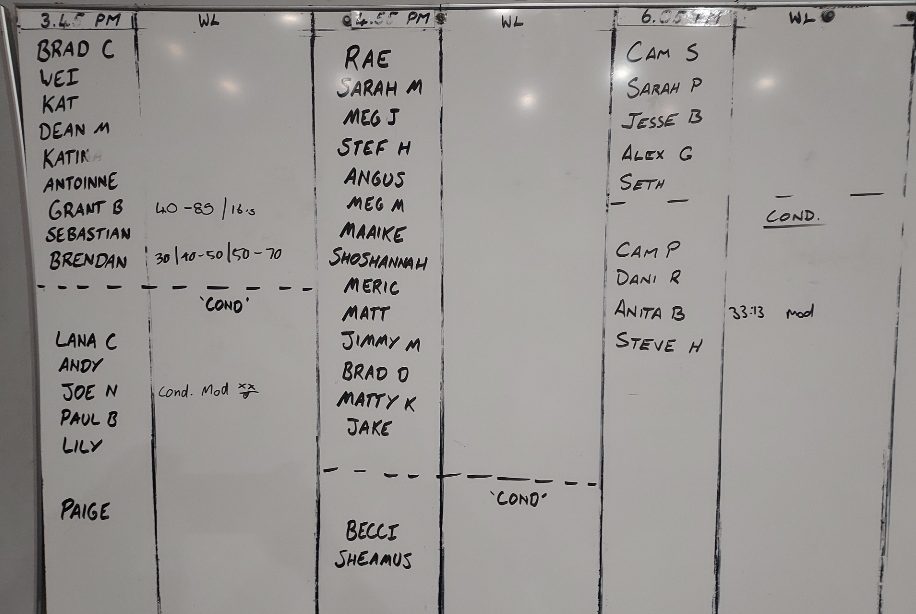 3.45 PM WL
BRAD C
WEI
KAT
DEAN M
KATIK
ANTOINNE
GRANT B 40-85/16.5
SEBASTIAN
BRENDAN 30/40-50/50-70
'COND'
LANA C
ANDY
JOE N Cond. Mod
PAUL B
LILY
PAIGE
4.55 PM WL
RAE
SARAH M
MEG J
STEF H
ANGUS
MEG M
MAAIKE
SHOSHANNAH
MERIC
MATT
JIMMY M
BRAD D
MATTY K
JAKE
'COND'
BECCI
SHEAMUS
6.05 PM WL
CAM S
SARAH P
JESSE B
ALEX G
SETH
COND.
CAM P
DANI R
ANITA B 33:13 Mod
STEVE H